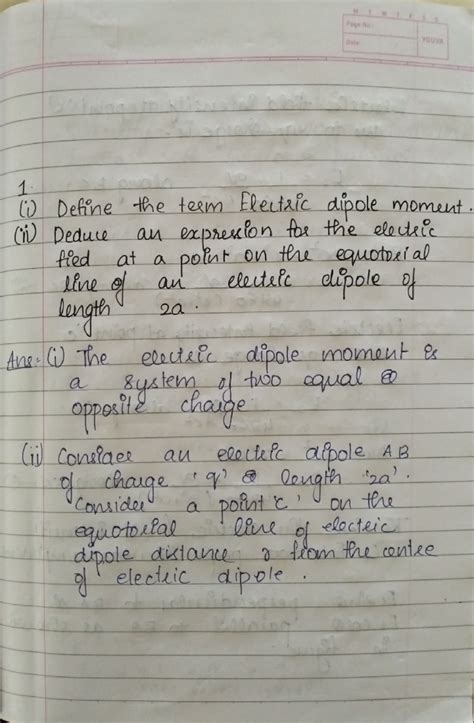 M T W T F S S
Page No.:
Date:
YOUVA
1.
(i) Define the term Electric dipole moment.
(ii) Deduce an expression for the electric
fied at a point on the equotorial
line of an electric dipole of
length 2a.
Ans:- (i) The electric dipole moment is
a system of two equal &
opposite charge
(ii) Consider an electric dipole AB
of charge 'q' & length '2a'.
Consider a point 'c' on the
equotorial line of electric
dipole distance r from the centre
of electric dipole.